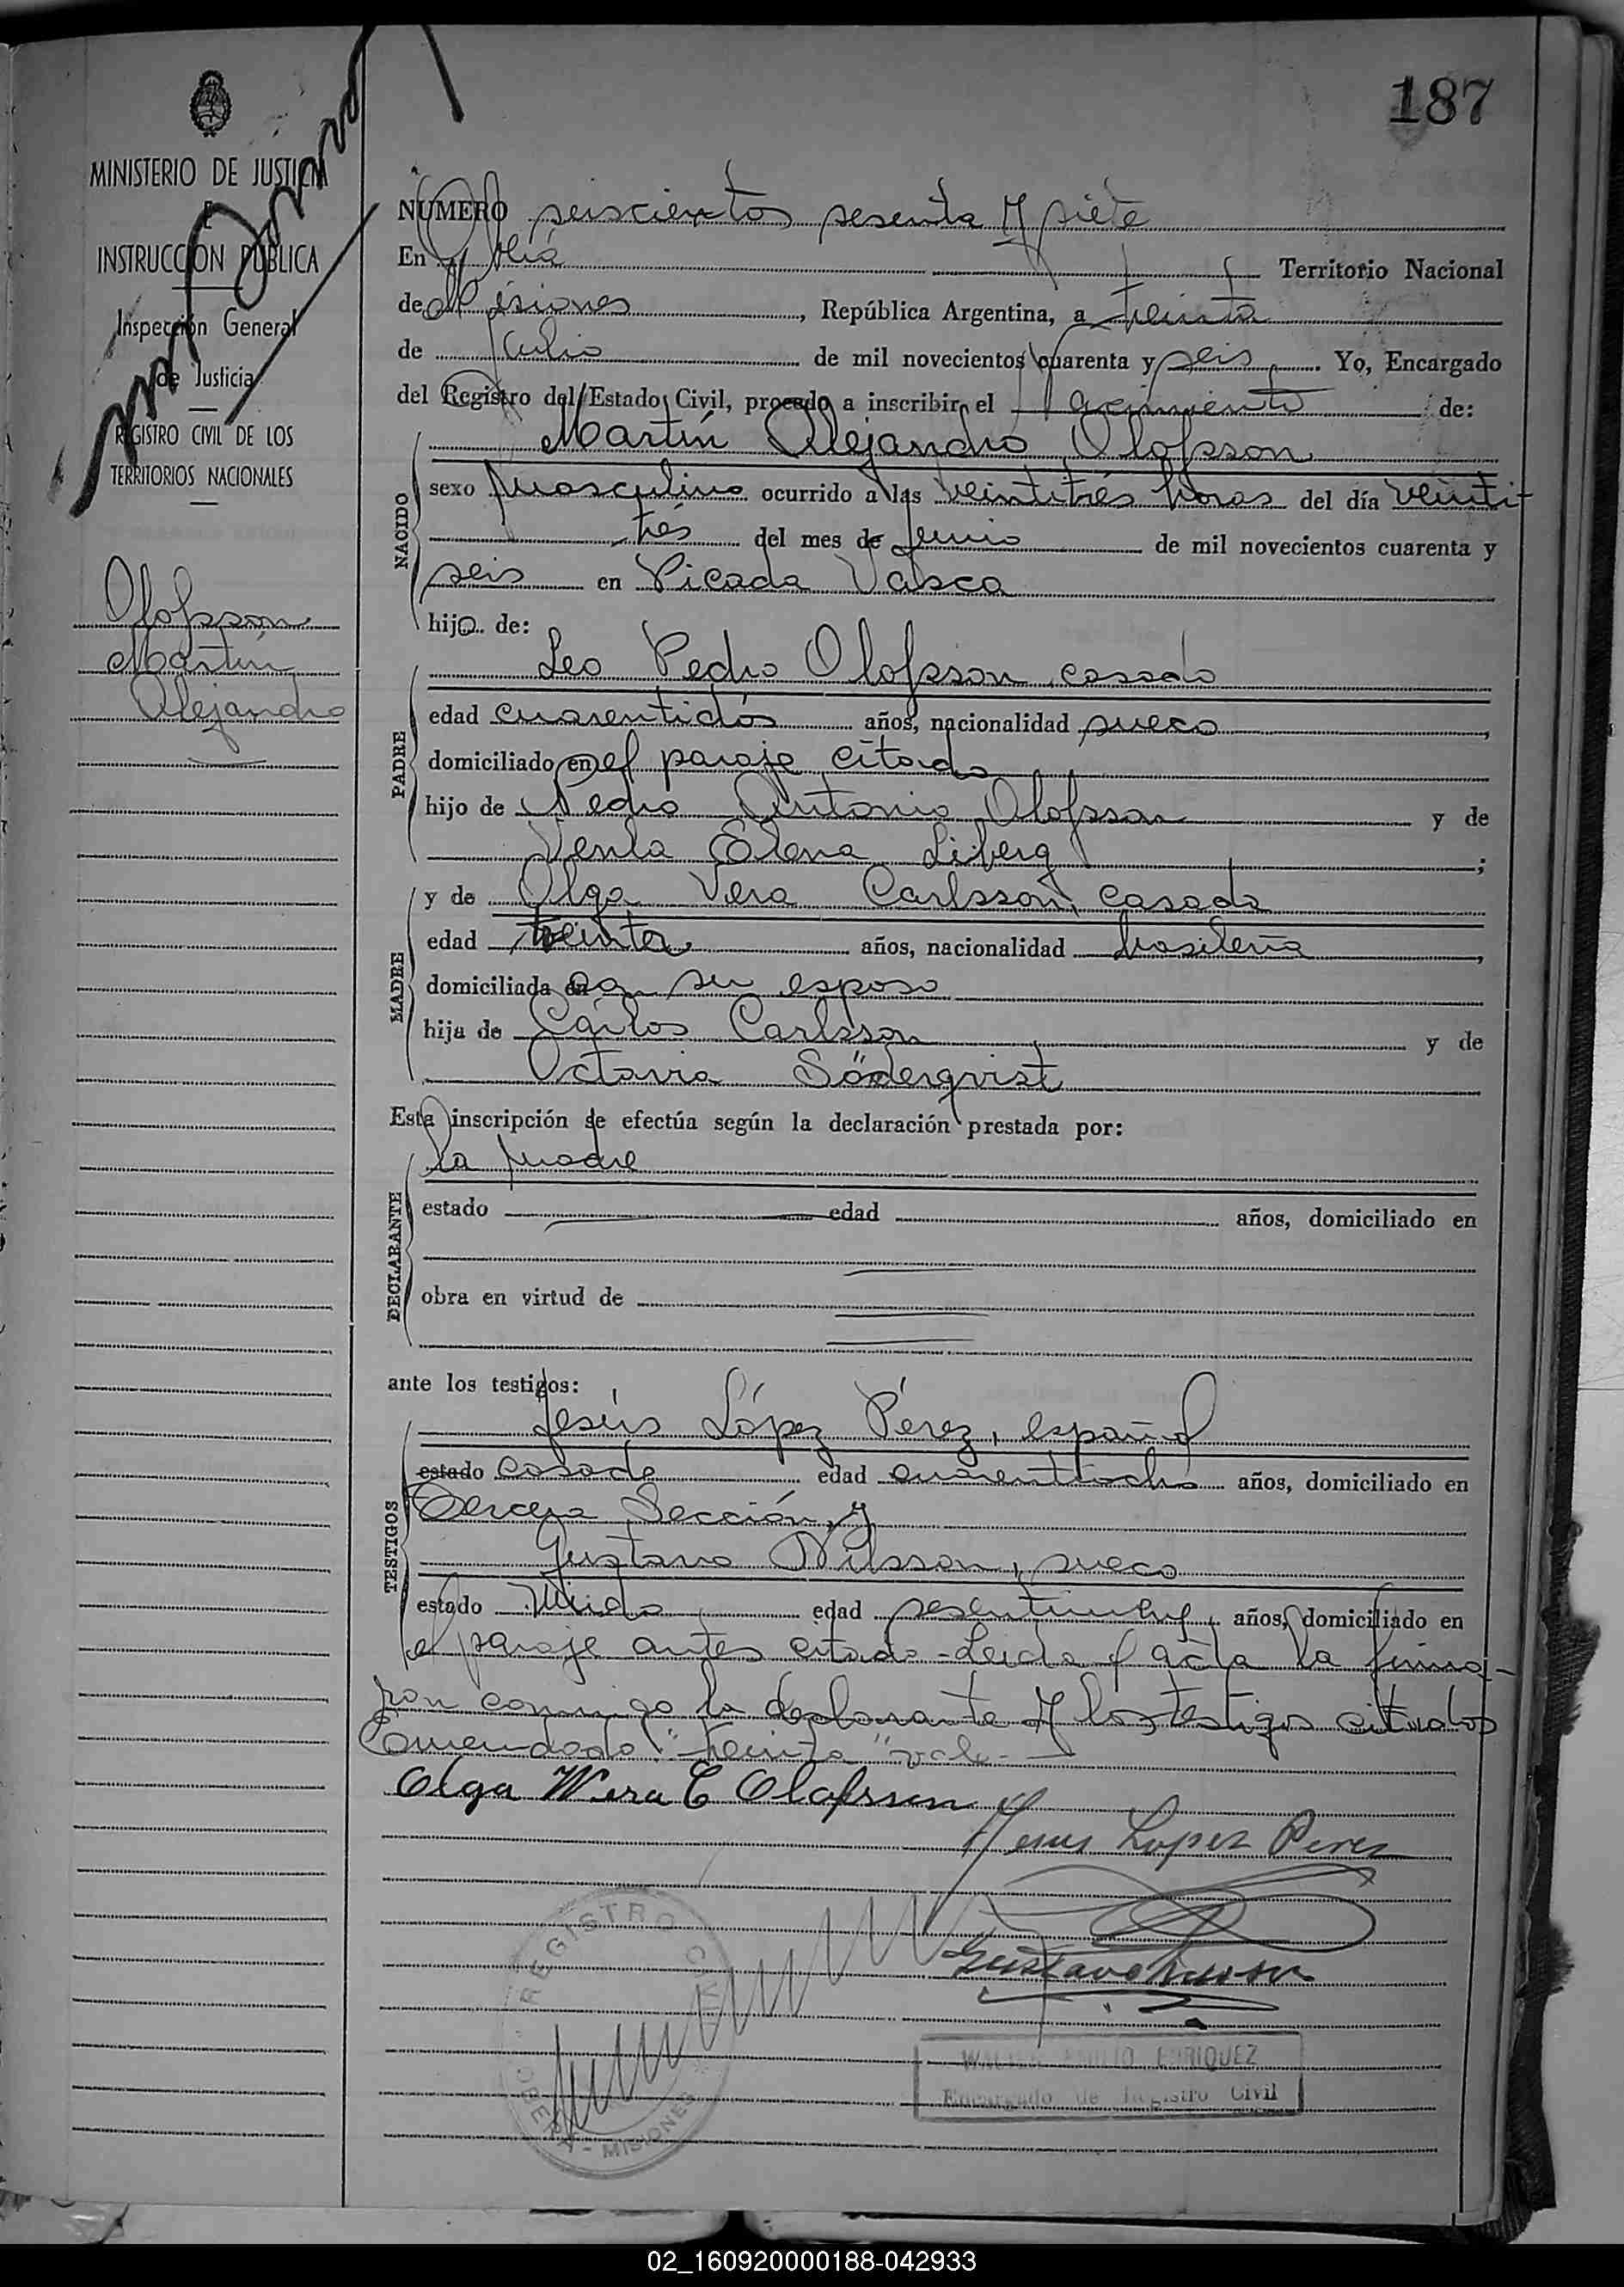 187
MINISTERIO DE JUSTICIA
E
INSTRUCCIÓN PÚBLICA
Inspección General
de Justicia
REGISTRO CIVIL DE LOS
TERRITORIOS NACIONALES
Olofsson
Martín
Alejandro
NUMERO seiscientos sesenta y siete
En Oberá Territorio Nacional
de Misiones, República Argentina, a treinta
de Julio de mil novecientos cuarenta y seis. Yo, Encargado
del Registro del Estado Civil, procedo a inscribir el Nacimiento de:
NACIDO
Martín Alejandro Olofsson
sexo masculino ocurrido a las veintitrés horas del día veinti-
trés del mes de Junio de mil novecientos cuarenta y
seis en Picada Vasca
hijo de:
PADRE
Leo Pedro Olofsson, casado
edad cuarentidós años, nacionalidad sueco,
domiciliado en el paraje citado
hijo de Pedro Antonio Olofsson y de
Venla Elena Liberg;
MADRE
y de Olga Vera Carlsson, casada
edad treinta años, nacionalidad brasileña,
domiciliada con su esposo
hija de Carlos Carlsson y de
Octavia Söderqvist
Esta inscripción se efectúa según la declaración prestada por:
DECLARANTE
la madre
estado edad años, domiciliado en
obra en virtud de
ante los testigos:
TESTIGOS
Jesús López Pérez, español
estado casado edad cuarentiocho años, domiciliado en
Tercera Sección, y
Gustavo Nilsson, sueco
estado viudo edad sesentinueve, años, domiciliado en
el paraje antes citado - Leída el acta la firma-
ron conmigo la declarante y los testigos citados
Enmendado: "treinta" vale.-
Olga Wera C Olofsson
Jesus Lopez Perez
Gustavo Nilsson
REGISTRO CIVIL
OBERÁ - MISIONES
WALTER EMILIO ENRIQUEZ
Encargado de Registro Civil
02_160920000188-042933